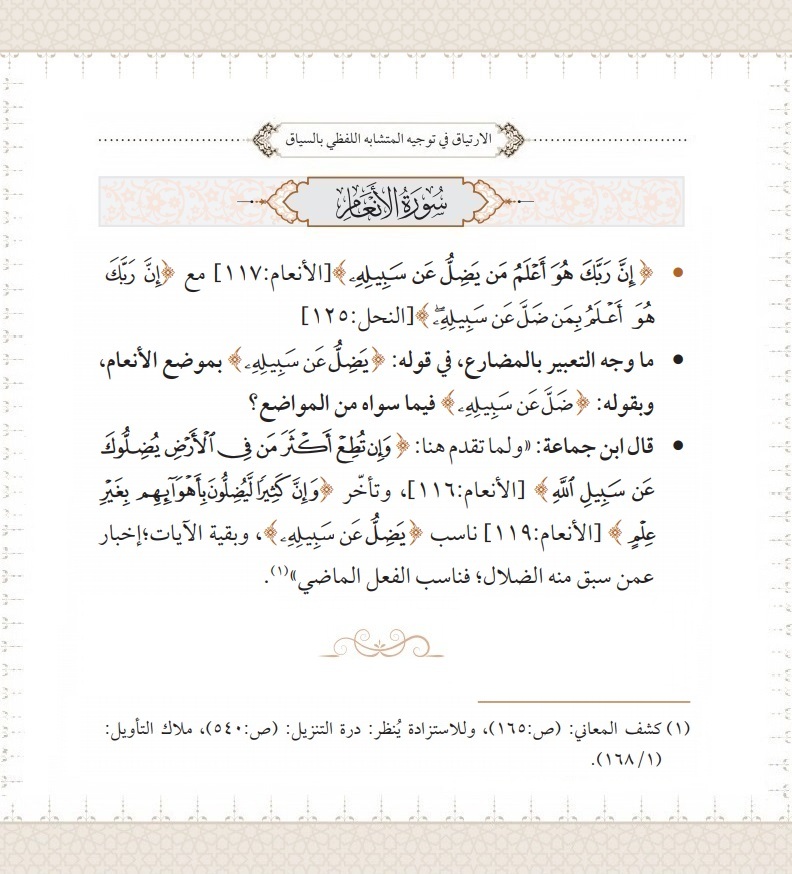 الارتياق في توجيه المتشابه اللفظي بالسياق
سُورَةُ الأَنْعَامِ
• ﴿ إِنَّ رَبَّكَ هُوَ أَعۡلَمُ مَن يَضِلُّ عَن سَبِيلِهِۦ﴾[الأنعام:١١٧] مع ﴿إِنَّ رَبَّكَ
هُوَ أَعۡلَمُ بِمَن ضَلَّ عَن سَبِيلِهِۦۖ﴾[النحل:١٢٥]
• ما وجه التعبير بالمضارع، في قوله: ﴿يَضِلُّ عَن سَبِيلِهِۦ﴾ بموضع الأنعام،
وبقوله: ﴿ضَلَّ عَن سَبِيلِهِۦ﴾ فيما سواه من المواضع؟
• قال ابن جماعة: «ولما تقدم هنا: ﴿ وَإِن تُطِعۡ أَكۡثَرَ مَن فِي ٱلۡأَرۡضِ يُضِلُّوكَ
عَن سَبِيلِ ٱللَّهِ﴾ [الأنعام:١١٦]، وتأخّر ﴿وَإِنَّ كَثِيرٗا لَّيُضِلُّونَ بِأَهۡوَآئِهِم بِغَيۡرِ
عِلۡمٍ﴾ [الأنعام:١١٩] ناسب ﴿يَضِلُّ عَن سَبِيلِهِۦ﴾، وبقية الآيات؛إخبار
عمن سبق منه الضلال؛ فناسب الفعل الماضي»(١).
(١) كشف المعاني: (ص:١٦٥)، وللاستزادة يُنظر: درة التنزيل: (ص:٥٤٠)، ملاك التأويل:
(١/ ١٦٨).